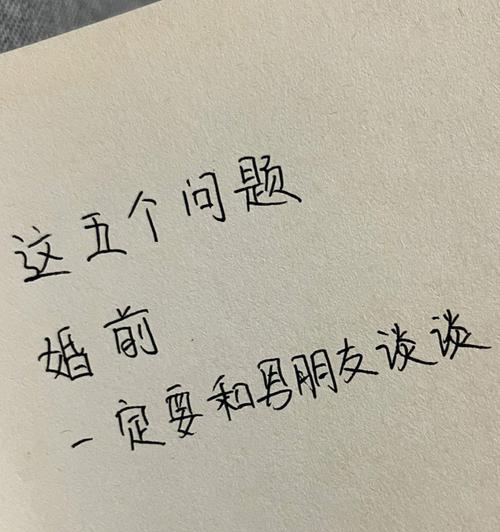 这五个问题
婚前
一定要和男朋友谈谈